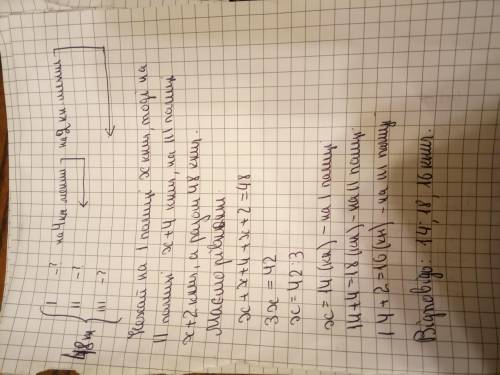 48 кн
I - ? на 4 кн. менше
II - ?
III - ? на 2 кн. менше
Нехай на I полиці x книг, тоді на
II полиці x+4 книг, на III полиці
x+2 книг, а разом 48 книг.
Маємо рівняння
x+x+4+x+2=48
3x=42
x=42:3
x=14 (кн) - на I полиці
14+4=18 (кн) - на II полиці
14+2=16 (кн) - на III полиці
Відповідь: 14; 18; 16 книг.